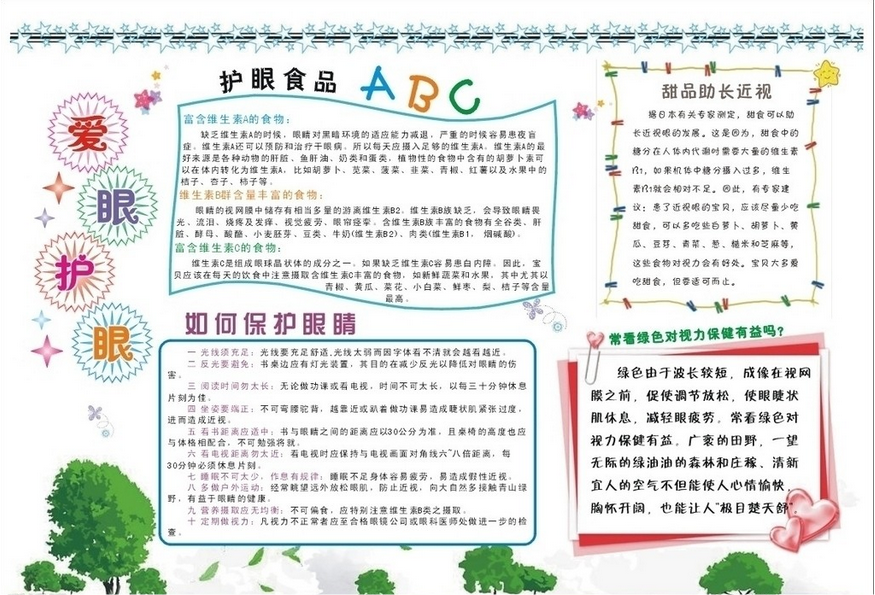 爱
眼
护
眼
护眼食品 ABC
富含维生素A的食物：
缺乏维生素A的时候，眼睛对黑暗环境的适应能力减退，严重的时候容易患夜盲
症。维生素A还可以预防和治疗干眼病。所以每天应摄入足够的维生素A。维生素A的最
好来源是各种动物的肝脏、鱼肝油、奶类和蛋类，植物性的食物中含有的胡萝卜素可
以在体内转化为维生素A，比如胡萝卜、苋菜、菠菜、韭菜、青椒、红薯以及水果中的
桔子、杏子、柿子等。
维生素B群含量丰富的食物：
眼睛的视网膜中储存有相当多量的游离维生素B2。维生素B族缺乏，会导致眼睛畏
光、流泪、烧疼及发痒、视觉疲劳、眼帘痉挛。含维生素B族丰富的食物有全谷类、肝
脏、酵母、酸酪、小麦胚芽、豆类、牛奶(维生素B2)、肉类(维生素B1， 烟碱酸)。
富含维生素C的食物：
维生素C是组成眼球晶状体的成分之一，如果缺乏维生素C容易患白内障。因此，宝
贝应该在每天的饮食中注意摄取含维生素C丰富的食物，如新鲜蔬菜和水果，其中尤其以
青椒、黄瓜、菜花、小白菜、鲜枣、梨、桔子等含量
最高。
甜品助长近视
据日本有关专家测定，甜食可以助
长近视眼的发展。这是因为，甜食中的
糖分在人体内代谢时需要大量的维生素
B1，如果机体中糖分摄入过多，维生
素B1就会相对不足。因此，有专家建
议：患了近视眼的宝贝，应该尽量少吃
甜食，可以多吃些白萝卜、胡萝卜、黄
瓜、豆芽、青菜、葱、糙米和芝麻等，
这些食物对视力会有好处。宝贝大多爱
吃甜食，但要适可而止。
如何保护眼睛
一 光线须充足：光线要充足舒适，光线太弱而因字体看不清就会越看越近。
二 反光要避免：书桌边应有灯光装置，其目的在减少反光以降低对眼睛的伤
害。
三 阅读时间勿太长：无论做功课或看电视，时间不可太长，以每三十分钟休息
片刻为佳。
四 坐姿要端正：不可弯腰驼背，越靠近或趴着做功课易造成睫状肌紧张过度，
进而造成近视。
五 看书距离应适中：书与眼睛之间的距离应以30公分为准，且桌椅的高度也应
与体格相配合，不可勉强将就。
六 看电视距离勿太近：看电视时应保持与电视画面对角线六~八倍距离，每
30分钟必须休息片刻。
七 睡眠不可太少，作息有规律：睡眠不足身体容易疲劳，易造成假性近视。
八 多做户外运动：经常眺望远外放松眼肌，防止近视，向大自然多接触青山绿
野，有益于眼睛的健康。
九 营养摄取应无均衡：不可偏食，应特别注意维生素B类之摄取。
十 定期做视力：凡视力不正常者应至合格眼镜公司或眼科医师处做进一步的检
查。
常看绿色对视力保健有益吗？
绿色由于波长较短，成像在视网
膜之前，促使调节放松，使眼睫状
肌休息，减轻眼疲劳。常看绿色对
视力保健有益。广袤的田野，一望
无际的绿油油的森林和庄稼、清新
宜人的空气不但能使人心情愉快，
胸怀开阔，也能让人“极目楚天舒”。